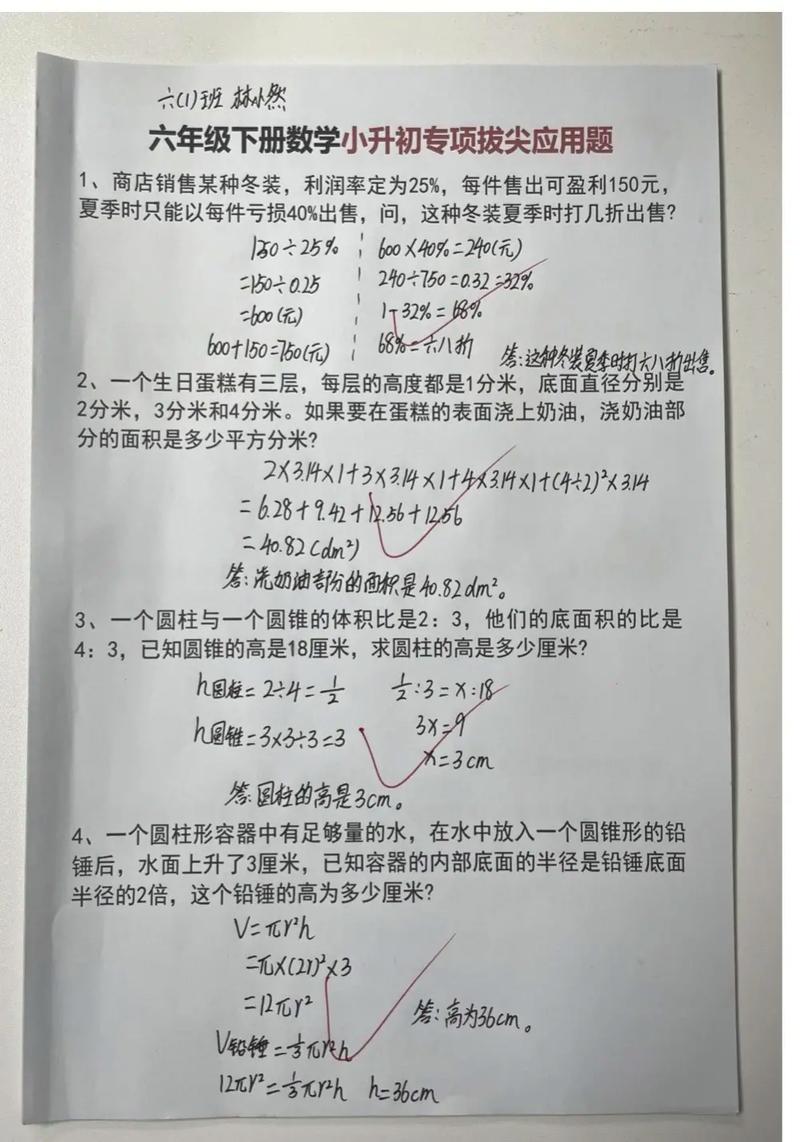 六(1)班 林小然
六年级下册数学小升初专项拔尖应用题
1、商店销售某种冬装，利润率定为25%，每件售出可盈利150元，
夏季时只能以每件亏损40%出售，问，这种冬装夏季时打几折出售?
150÷25%
=150÷0.25
=600(元)
600+150=750(元)
600×40%=240(元)
240÷750=0.32=32%
1-32%=68%
68%=六八折
答:这种冬装夏季时打六八折出售。
2、一个生日蛋糕有三层，每层的高度都是1分米，底面直径分别是
2分米，3分米和4分米。如果要在蛋糕的表面浇上奶油，浇奶油部
分的面积是多少平方分米?
2×3.14×1+3×3.14×1+4×3.14×1+(4÷2)²×3.14
=6.28+9.42+12.56+12.56
=40.82(dm²)
答:浇奶油部分的面积是40.82dm²。
3、一个圆柱与一个圆锥的体积比是2：3，他们的底面积的比是
4：3，已知圆锥的高是18厘米，求圆柱的高是多少厘米?
h圆柱=2÷4=1/2
h圆锥=3×3÷3=3
1/2:3=x:18
3x=9
x=3cm
答:圆柱的高是3cm。
4、一个圆柱形容器中有足够量的水，在水中放入一个圆锥形的铅
锤后，水面上升了3厘米，已知容器的内部底面的半径是铅锤底面
半径的2倍，这个铅锤的高为多少厘米?
V=πr²h
=π×(2r)²×3
=12πr²
V铅锤=1/3πr²h
12πr²=1/3πr²h h=36cm
答:高为36cm。